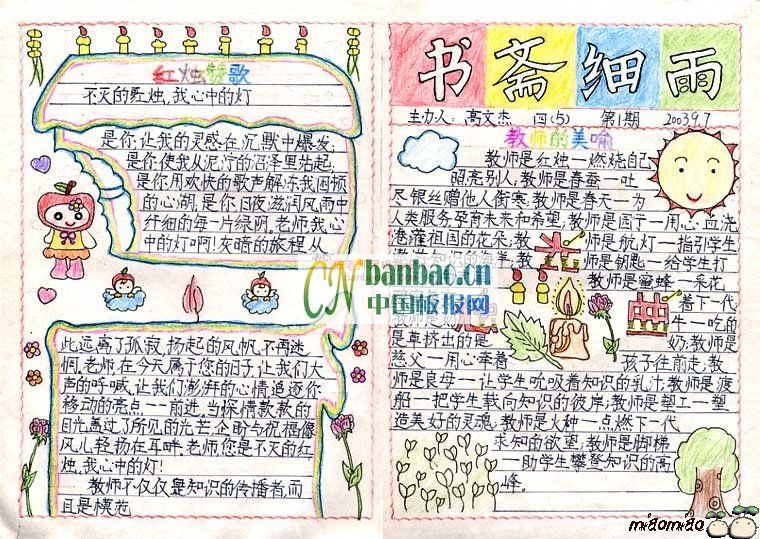 红烛 歌
不灭的红烛,我心中的灯
是你,让我的灵感在沉默中爆发;
是你,使我从泥泞的沼泽里站起;
是你,用欢快的歌声解冻我困顿
的心湖,是你,日夜滋润风雨中
纤细的每一片绿阴,老师,我心
中的灯啊!灰暗的旅程,从
此远离了孤寂,扬起的风帆,不再迷
惘,老师,在今天属于您的日子,让我们大
声的呼喊,让我们澎湃的心情追逐你
移动的亮点——前进,当深情款款的
目光,高过了所见的光芒,企盼与祝福像
风儿,轻扬在耳畔,老师,您是不灭的红
烛,我心中的灯!
教师不仅仅是知识的传播者,而
且是模范
banbao.cn
中国板报网
书斋细雨
主办人:高文杰 四(5) 第1期 2003.9.7
教师的美喻
教师是红烛—燃烧自己
照亮别人;教师是春蚕—吐
尽银丝赠他人御寒;教师是春天—为
人类服务,孕育未来和希望;教师是园丁—用心血浇
灌祖国的花朵;教师是航灯—指引学生
师是钥匙—给学生打
教师是蜜蜂—采花
着下一代;
牛—吃的
是草挤出的是奶;教师是
慈父—用心牵着孩子往前走;教
师是良母—让学生吮吸着知识的乳汁;教师是渡
船—把学生载向知识的彼岸;教师是塑工—塑
造美好的灵魂;教师是火种—点燃下一代
求知的欲望;教师是脚梯
—助学生攀登知识的高
峰。
miaomiao